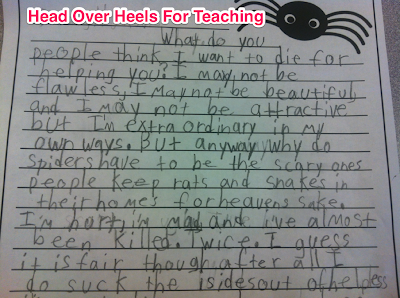 Head Over Heels For Teaching
What do you
people think I want to die for
helping you? I may not be
flawless, I may not be beautiful,
and I may not be attractive
but I'm extraordinary in my
own ways. But anyway why do
spiders have to be the scary ones
people keep rats and snakes in
their homes for heavens sake.
I'm hurt, i'm mad and i've almost
been killed. Twice. I guess
it is fair though after all I
do suck the isides out of helpess